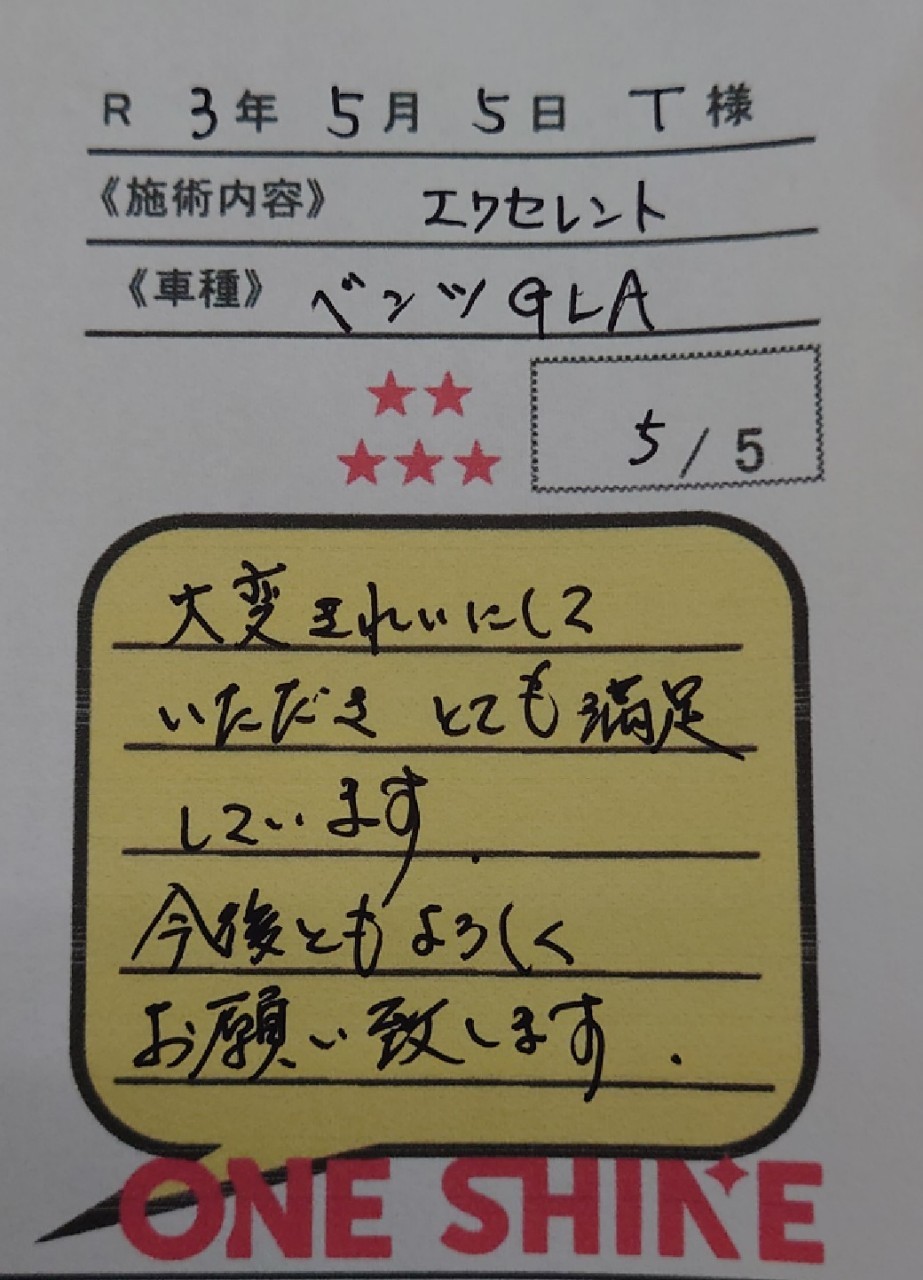 R 3年 5月 5日 T様
《施術内容》 エクセレント
《車種》 ベンツGLA
★★
★★★ 5/5
大変きれいにして
いただき とても満足
しています.
今後ともよろしく
お願い致します.
ONE SHINE